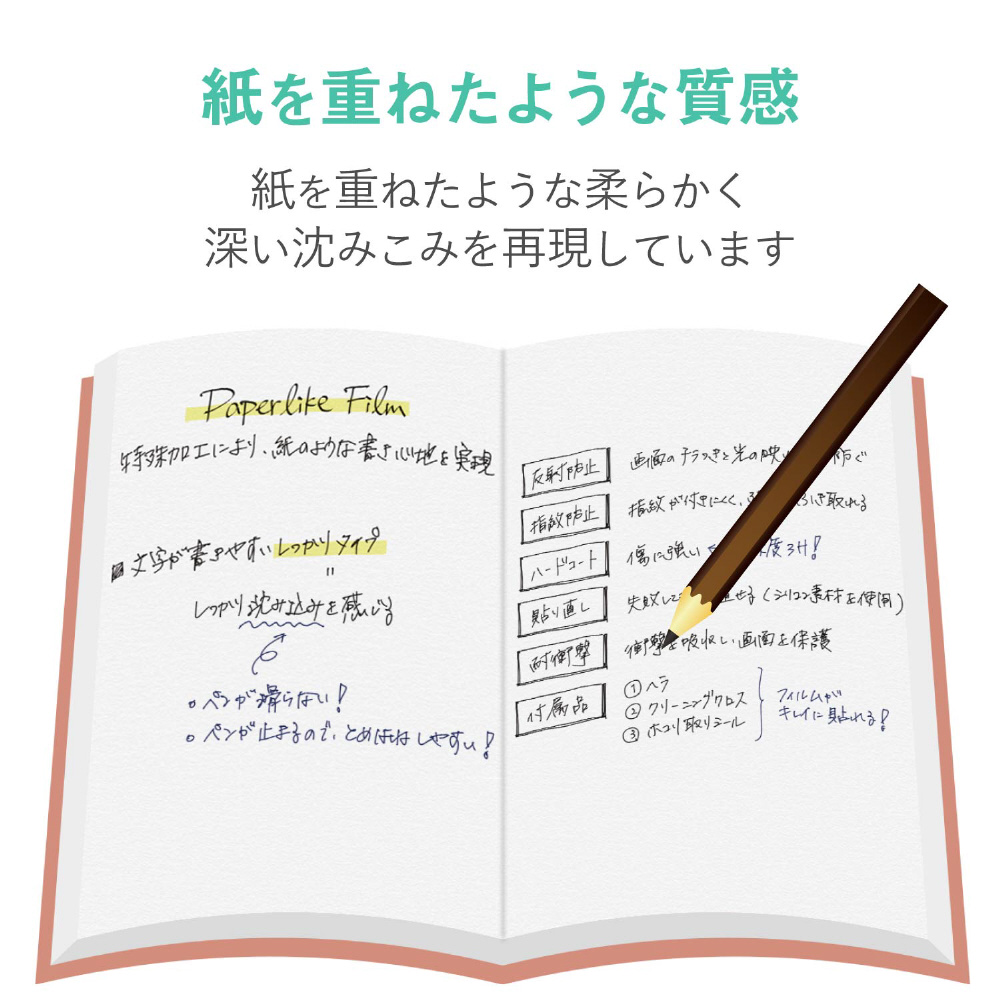 紙を重ねたような質感
紙を重ねたような柔らかく
深い沈みこみを再現しています
Paperlike Film
特殊加工により、紙のような書き心地を実現
文字が書きやすいしっかりタイプ
"
しっかり沈み込みを感じる
ペンが滑らない!
ペンが止まるので、とめはね しやすい!
反射防止 画面のチラつきと光の映 防ぐ
指紋防止 指紋が付きにくく、 き取れる
ハードコート 傷に強い 度3H!
貼り直し 失敗して せる(シリコン素材を使用)
耐衝撃 衝撃を吸収し、画面を保護
付属品
① ヘラ
② クリーニングクロス
③ ホコリ取りシール
フィルムが
キレイに貼れる!